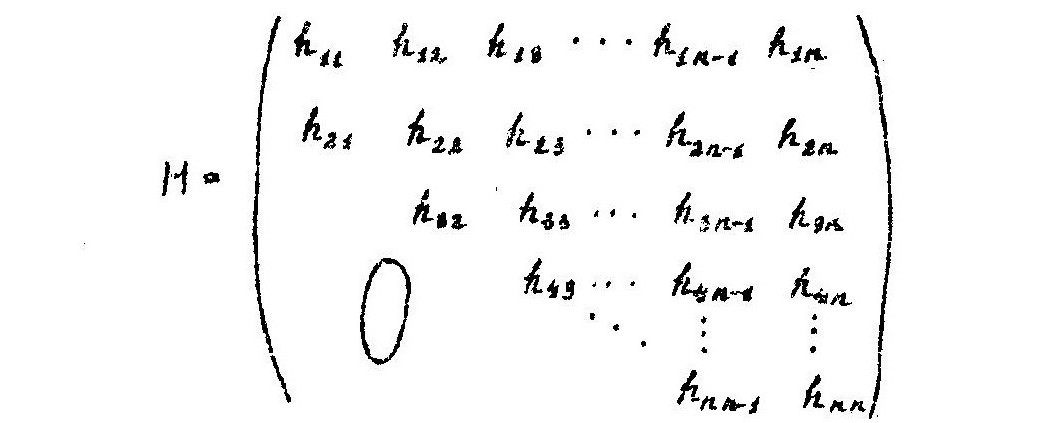 h₁₁ h₁₂ h₁₃ ··· h₁ₙ₋₁ h₁ₙ
h₂₁ h₂₂ h₂₃ ··· h₂ₙ₋₁ h₂ₙ
H = h₃₂ h₃₃ ··· h₃ₙ₋₁ h₃ₙ
0 h₄₃ ··· h₄ₙ₋₁ h₄ₙ
⋱ ⋮ ⋮
hₙₙ₋₁ hₙₙ